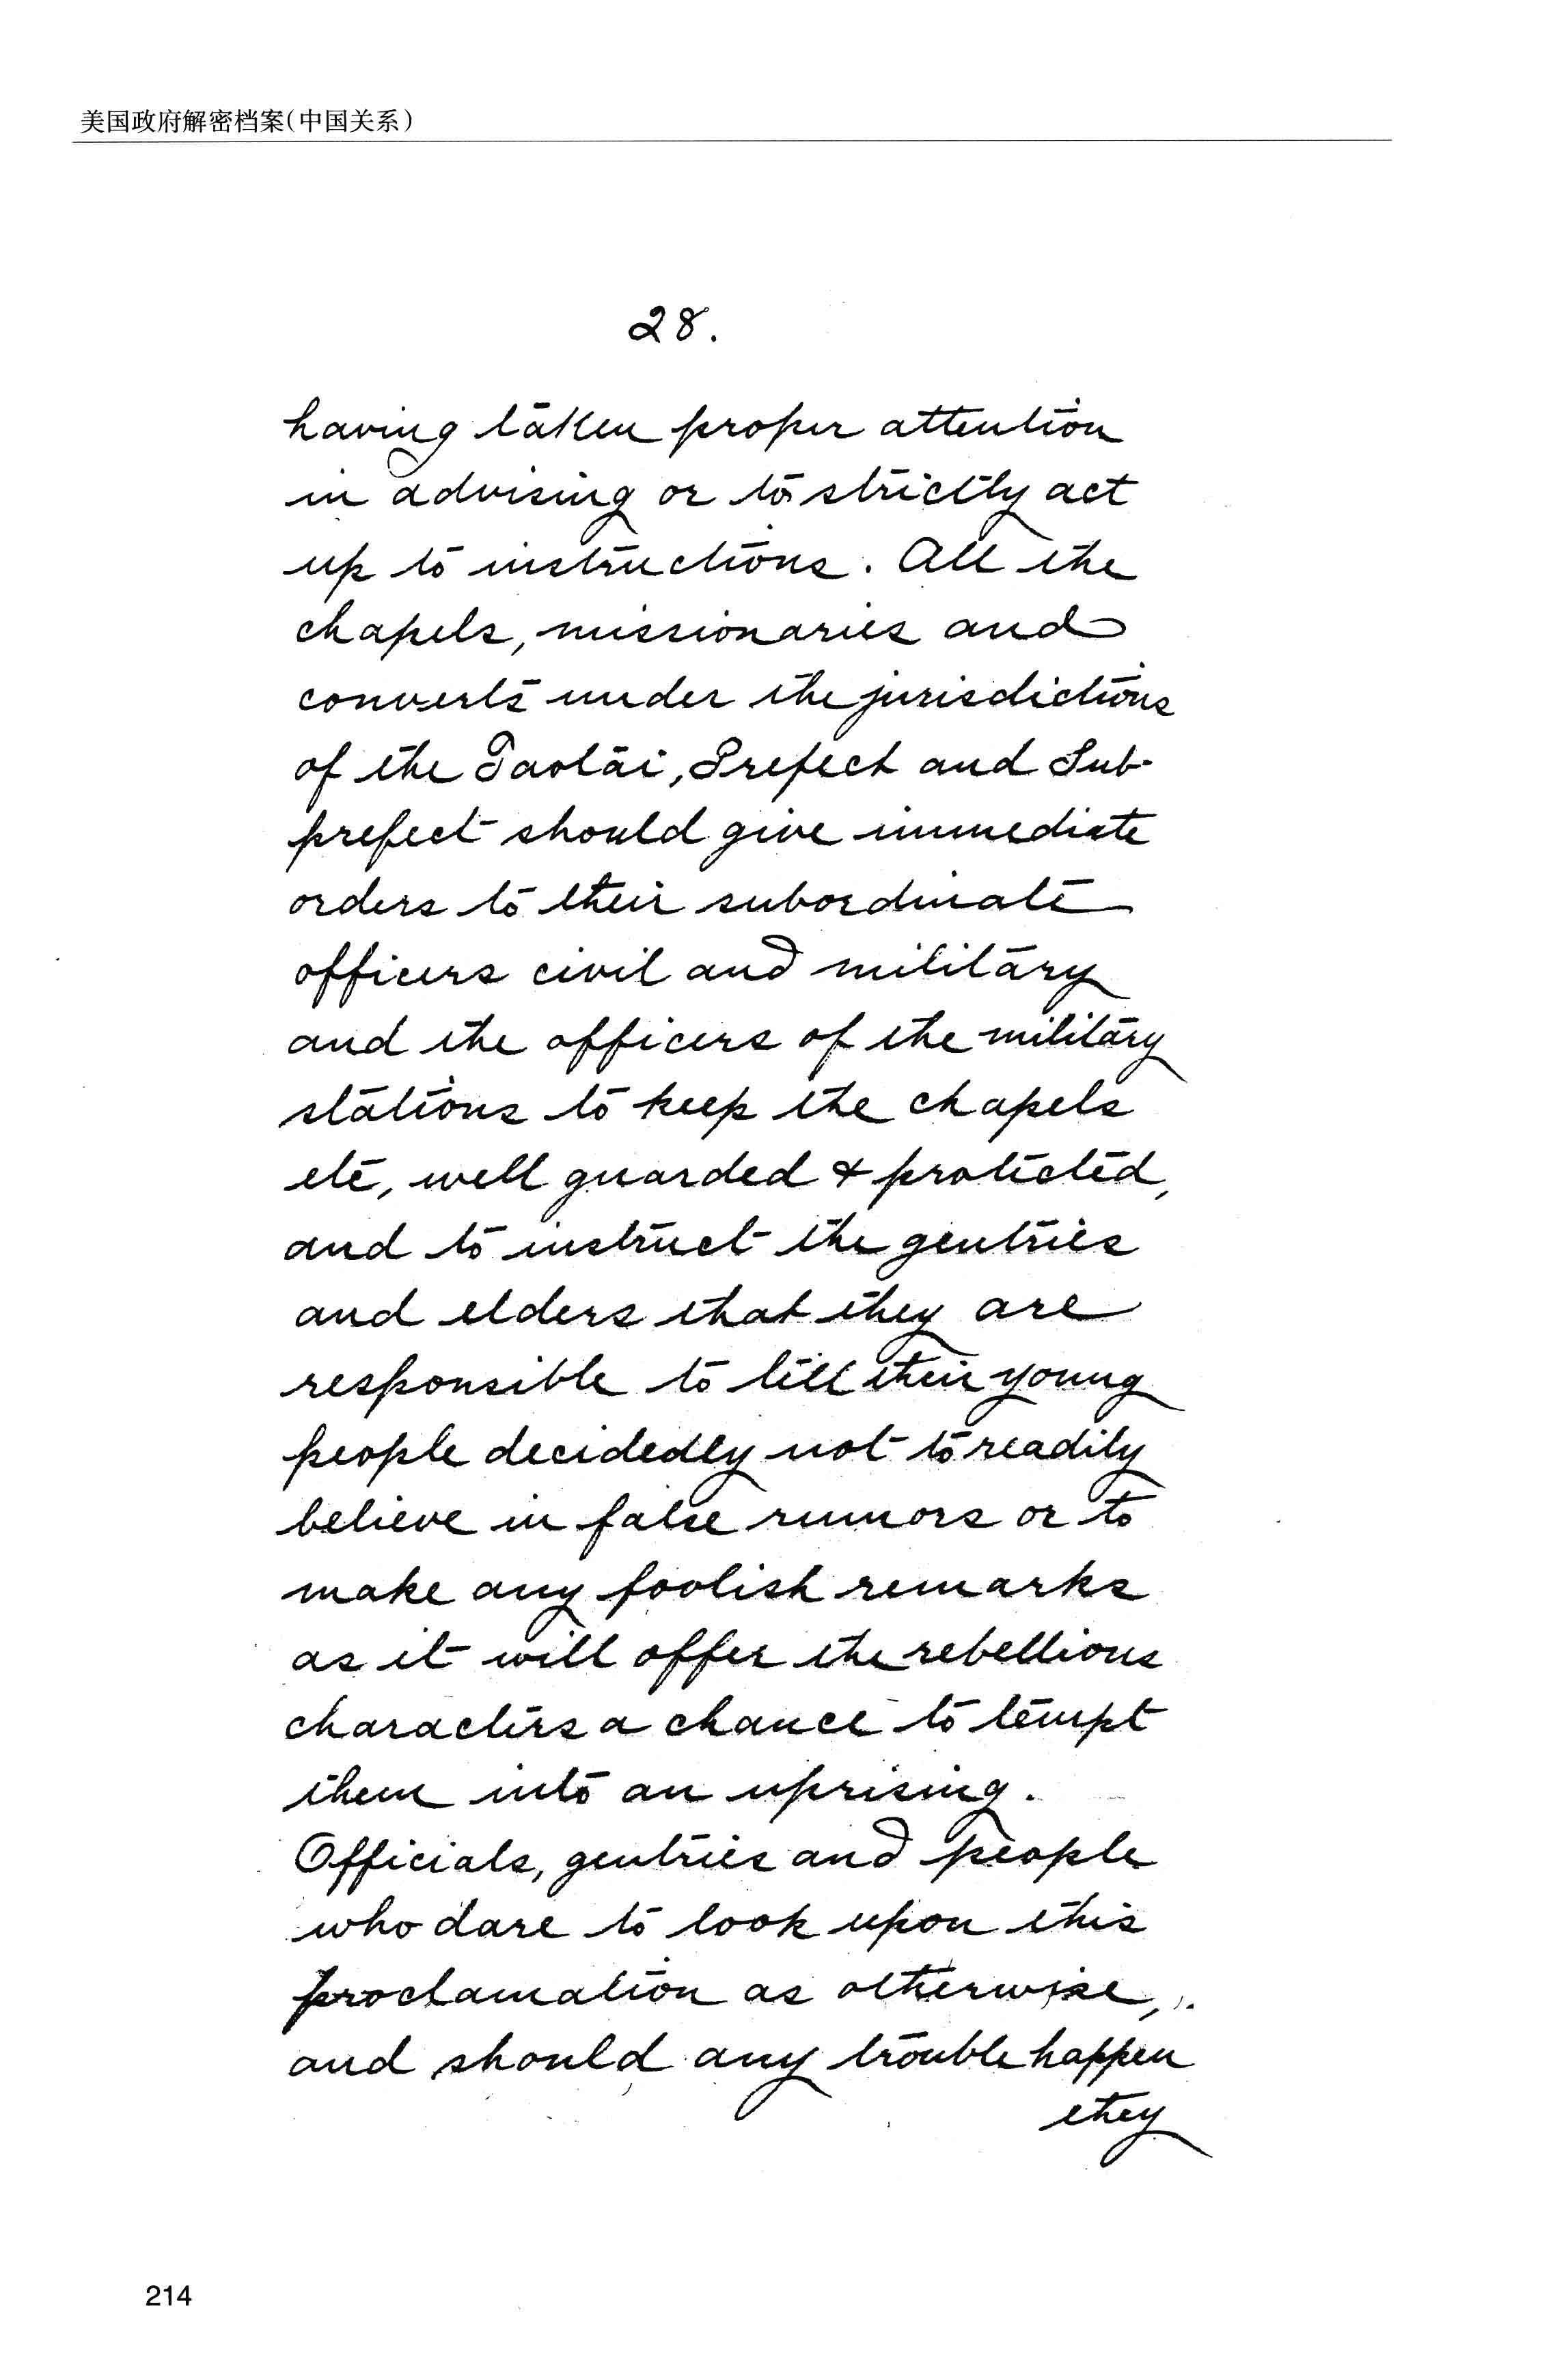 美国政府解密档案(中国关系)
28.
having taken proper attention
in advising or to strictly act
up to instructions. All the
chapels, missionaries and
converts under the jurisdictions
of the Taotai, Prefect and Sub-
prefect should give immediate
orders to their subordinate
officers civil and military
and the officers of the military
stations to keep the chapels
etc, well guarded & protected,
and to instruct the gentries
and elders that they are
responsible to tell their young
people decidedly not to readily
believe in false rumors or to
make any foolish remarks
as it will offer the rebellious
characters a chance to tempt
them into an uprising.
Officials, gentries and people
who dare to look upon this
proclamation as otherwise,
and should any trouble happen
they
214